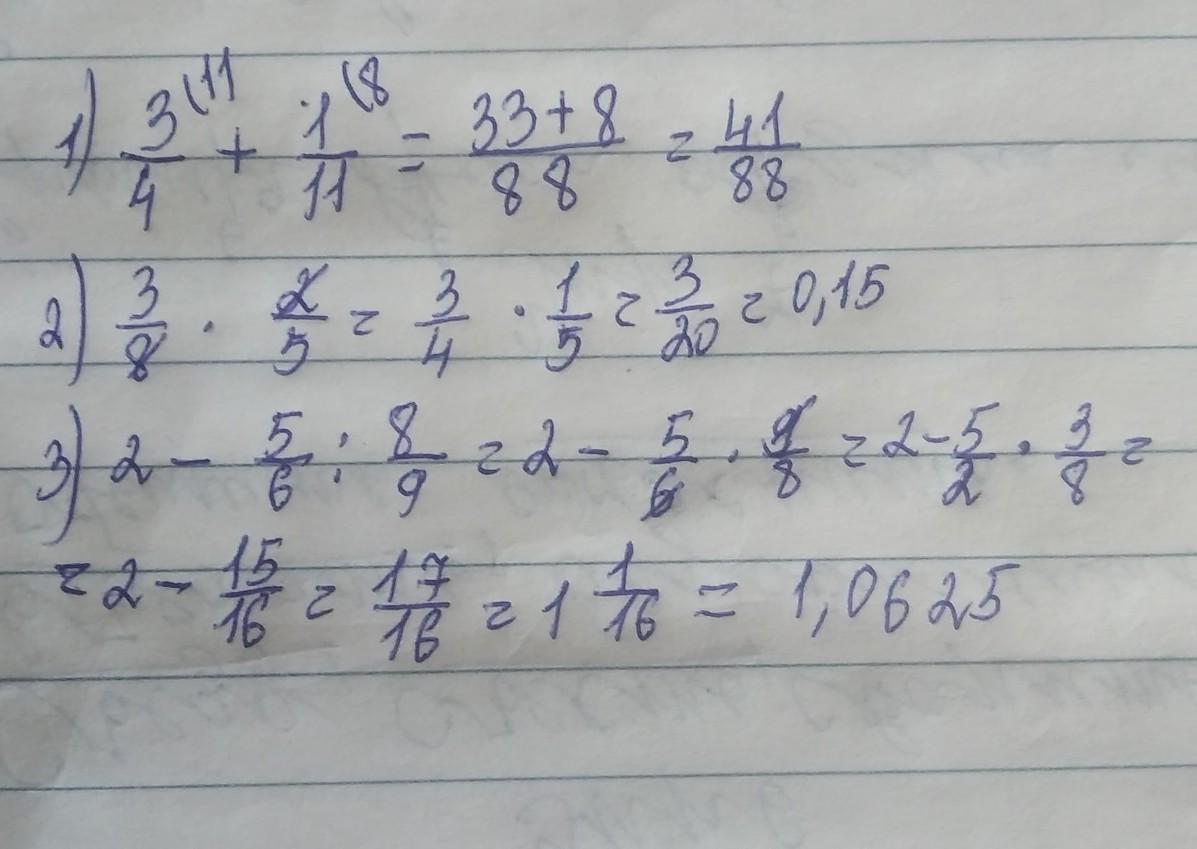 1) 3/4 (11 + 1/11 (8 = (33+8)/88 = 41/88
2) 3/8 · 2/5 = 3/4 · 1/5 = 3/20 = 0,15
3) 2 - 5/6 : 8/9 = 2 - 5/6 · 9/8 = 2 - 5/2 · 3/8 =
= 2 - 15/16 = 17/16 = 1 1/16 = 1,0625